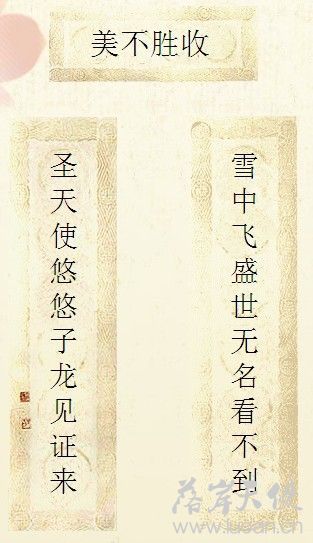 美不胜收
雪中飞盛世无名看不到
圣天使悠悠子龙见证来
落岸天使
www.luoan.cn